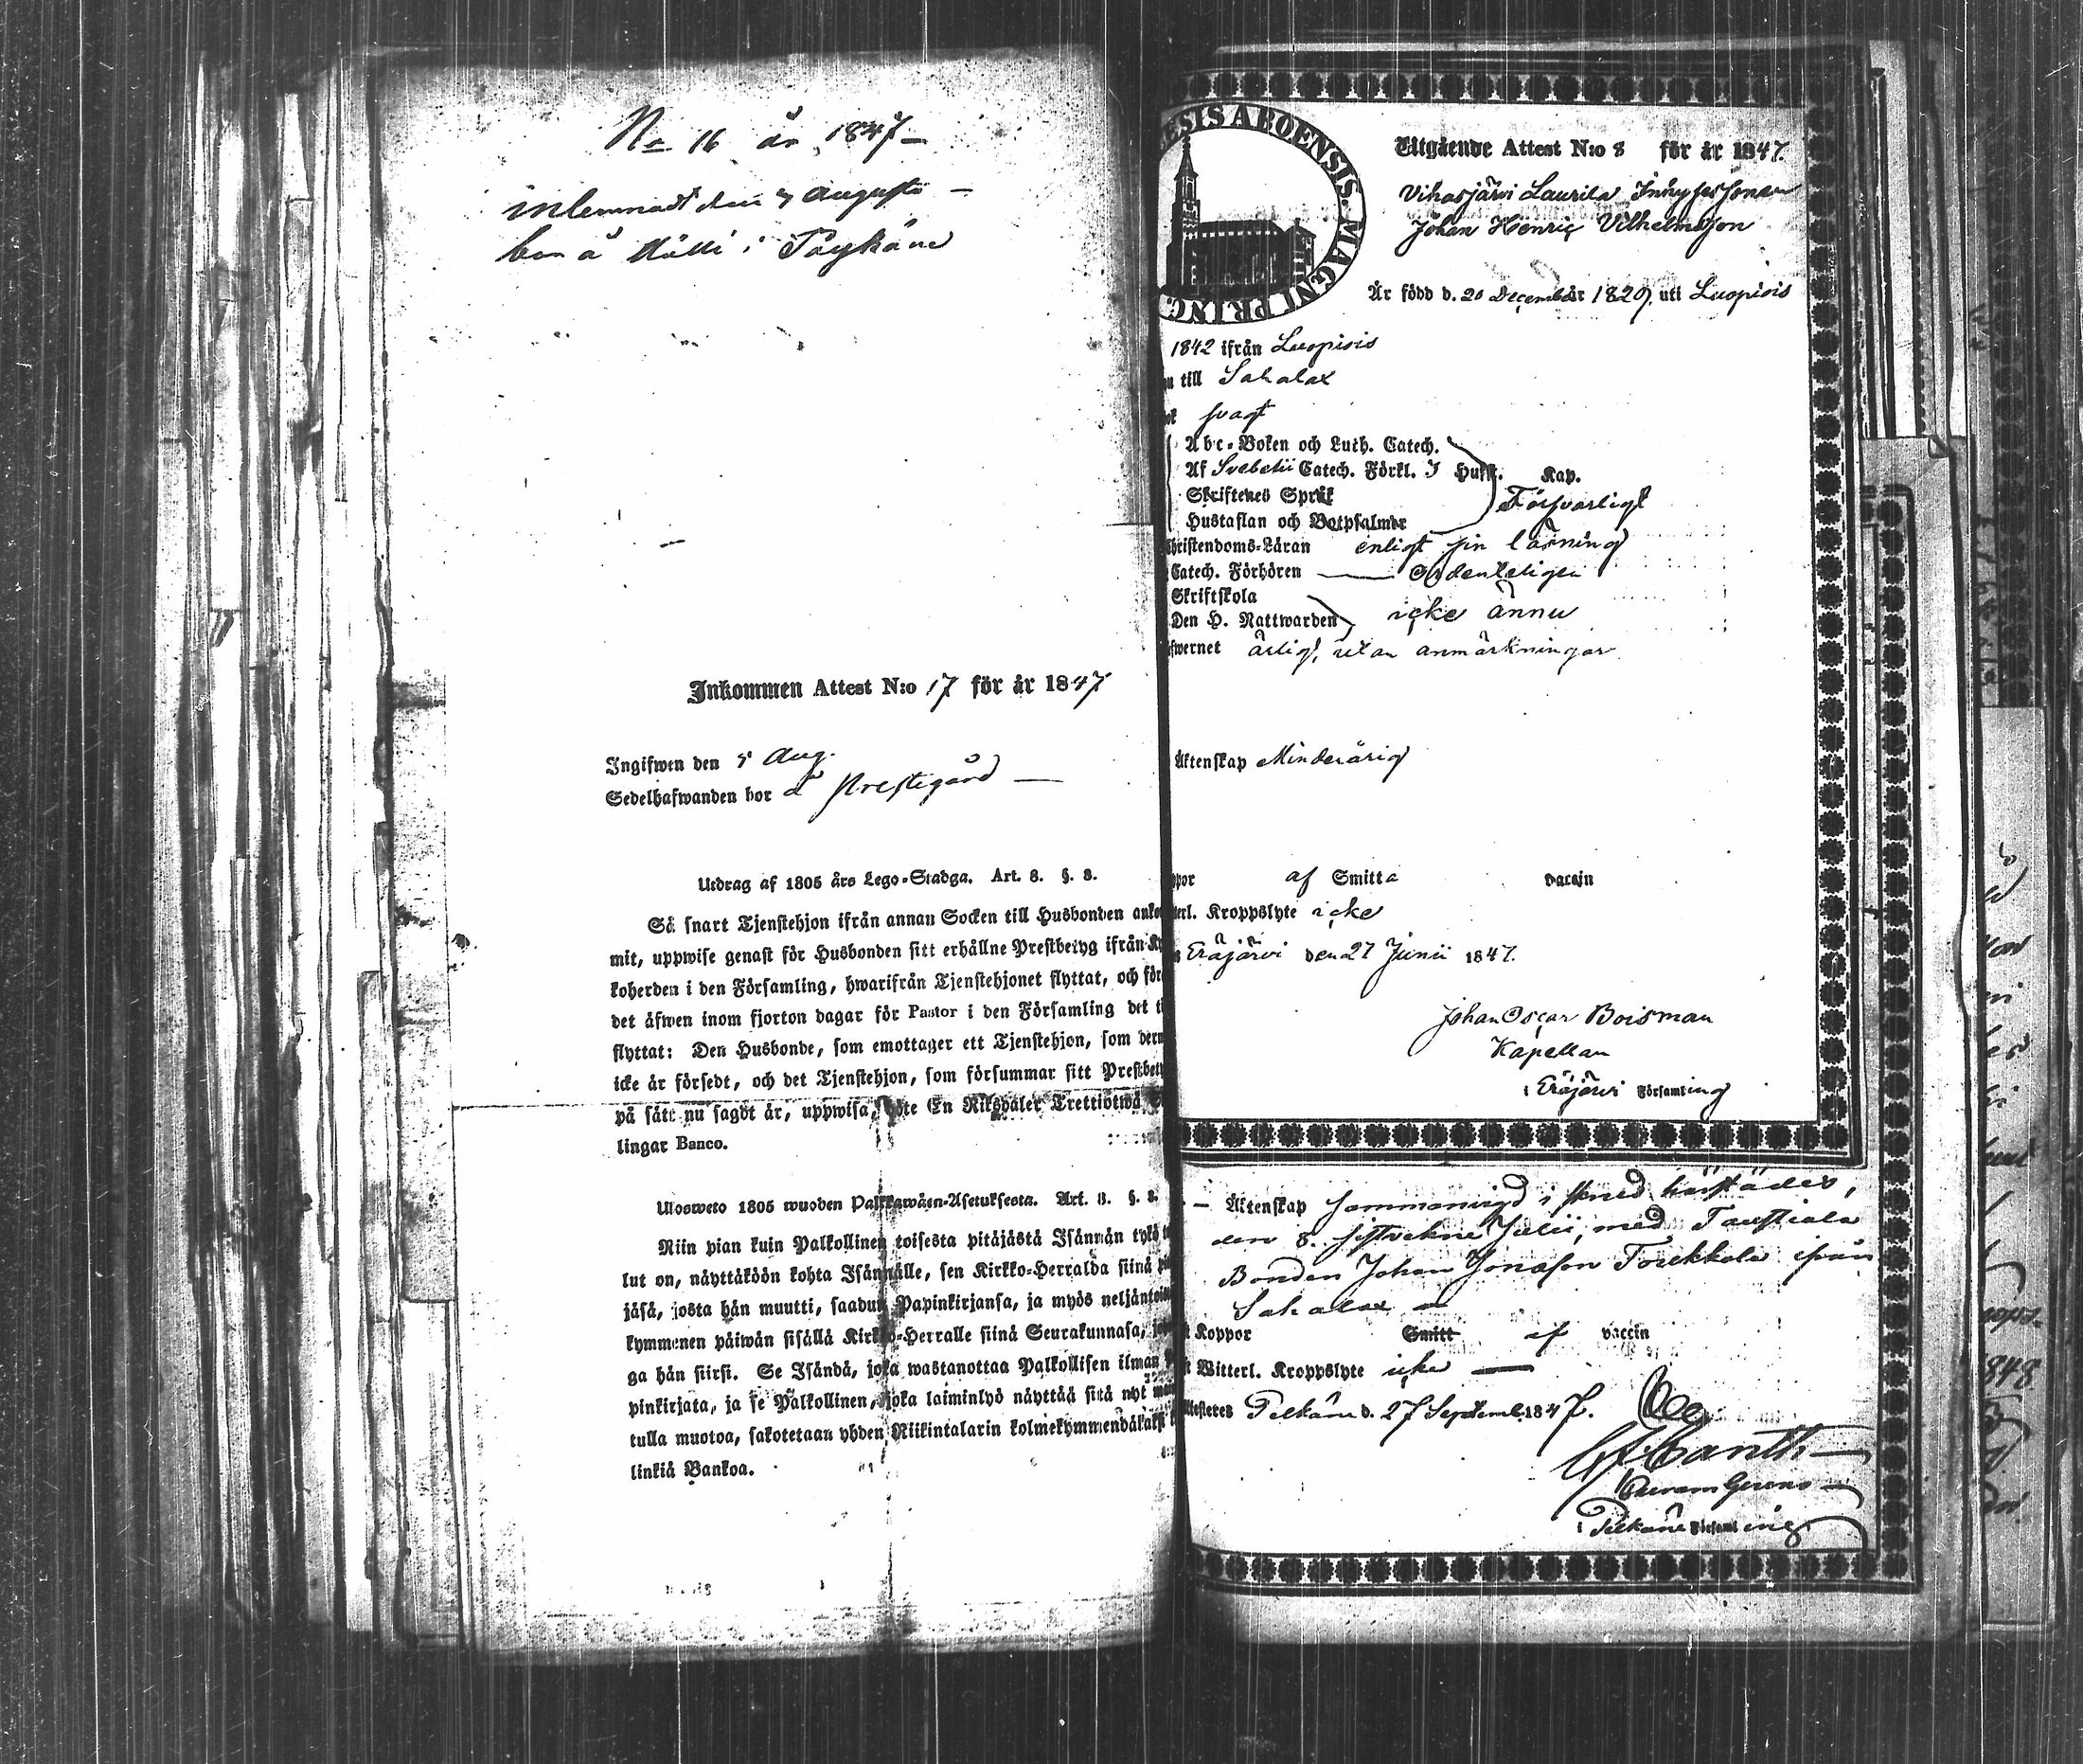 No 16 år 1847
inlemnadt den 7 Augusti
bor å Mälli i Päykäne
Inkommen Attest N:o 17 för år 1847
Ingifwen den 5 Aug.
Sedelhafwanden bor å Prestegård
Utdrag af 1805 års Lego-Stadga. Art. 8. §. 8.
Så snart Tjenstehjon ifrån annan Socken till Husbonden anko
mit, uppwise genast för Husbonden sitt erhållne Prestbetyg ifrån Ky
koherden i den Församling, hwarifrån Tjenstehjonet flyttat, och för
det äfwen inom fjorton dagar för Pastor i den Församling det ti
flyttat: Den Husbonde, som emottager ett Tjenstehjon, som derm
icke är försedt, och det Tjenstehjon, som försummar sitt Prestbety
på sätt nu sagdt är, uppwisa, böte En Riksdaler Trettiotwå
lingar Banco.
Ulosweto 1805 wuoden Palkkawäen-Asetuksesta. Art. 8. §. 8.
Niin pian kuin Palkollinen toisesta pitäjästä Isännän tykö
lut on, näyttäköön kohta Isännälle, sen Kirkko-Herralda siinä
jäsä, josta hän muutti, saadun Papinkirjansa, ja myös neljäntoi
kymmenen päiwän sisällä Kirkko-Herralle siinä Seurakunnasa,
ga hän siirsi. Se Isändä, joka wastanottaa Palkollisen ilman
pinkirjata, ja se Palkollinen, joka laiminlyö näyttää sitä nyt
tulla muotoa, sakotetaan yhden Riikintalarin kolmekymmendäkaksi
linkiä Bankoa.
ESIS ABOENSIS. MAGNI PRINC
Utgående Attest N:o 8 för år 1847.
Vihasjärvi Laurila Inhysessonen
Johan Henric Vilhelmsson
Är född d. 20 December 1829, uti Luopiois
1842 ifrån Luopiois
u till Sahalax
svagt
Abc-Boken och Luth. Catech.
Af Svebelii Catech. Förkl. 3 Hufst. Kap.
Skriftenes Språk Försvarligt
Hustaflan och Botpsalmer
hristendoms-Läran enligt sin läsning
Catech. Förhören ordenteligen
Skriftskola
Den H. Nattwarden icke ännu
fwernet ärligt, utan anmärkningar
Äktenskap Minderårig
ppor af Smitta vaccin
tterl. Kroppslyte icke
Eräjärvi den 27 Junii 1847.
Johan Oscar Boisman
Kapellan
i Eräjärvi Församling
Äktenskap sammanvigd i härstädes,
den 8. sistvekne Julii, med Taustiala
Bonden Johan Jonason Torekkola ifrån
Sahalax
Koppor Smitt af vaccin
Witterl. Kroppslyte icke
Attesteras Pelkäne d. 27 Septemb. 1847.
Curam Gerens
i Pelkäne Församling